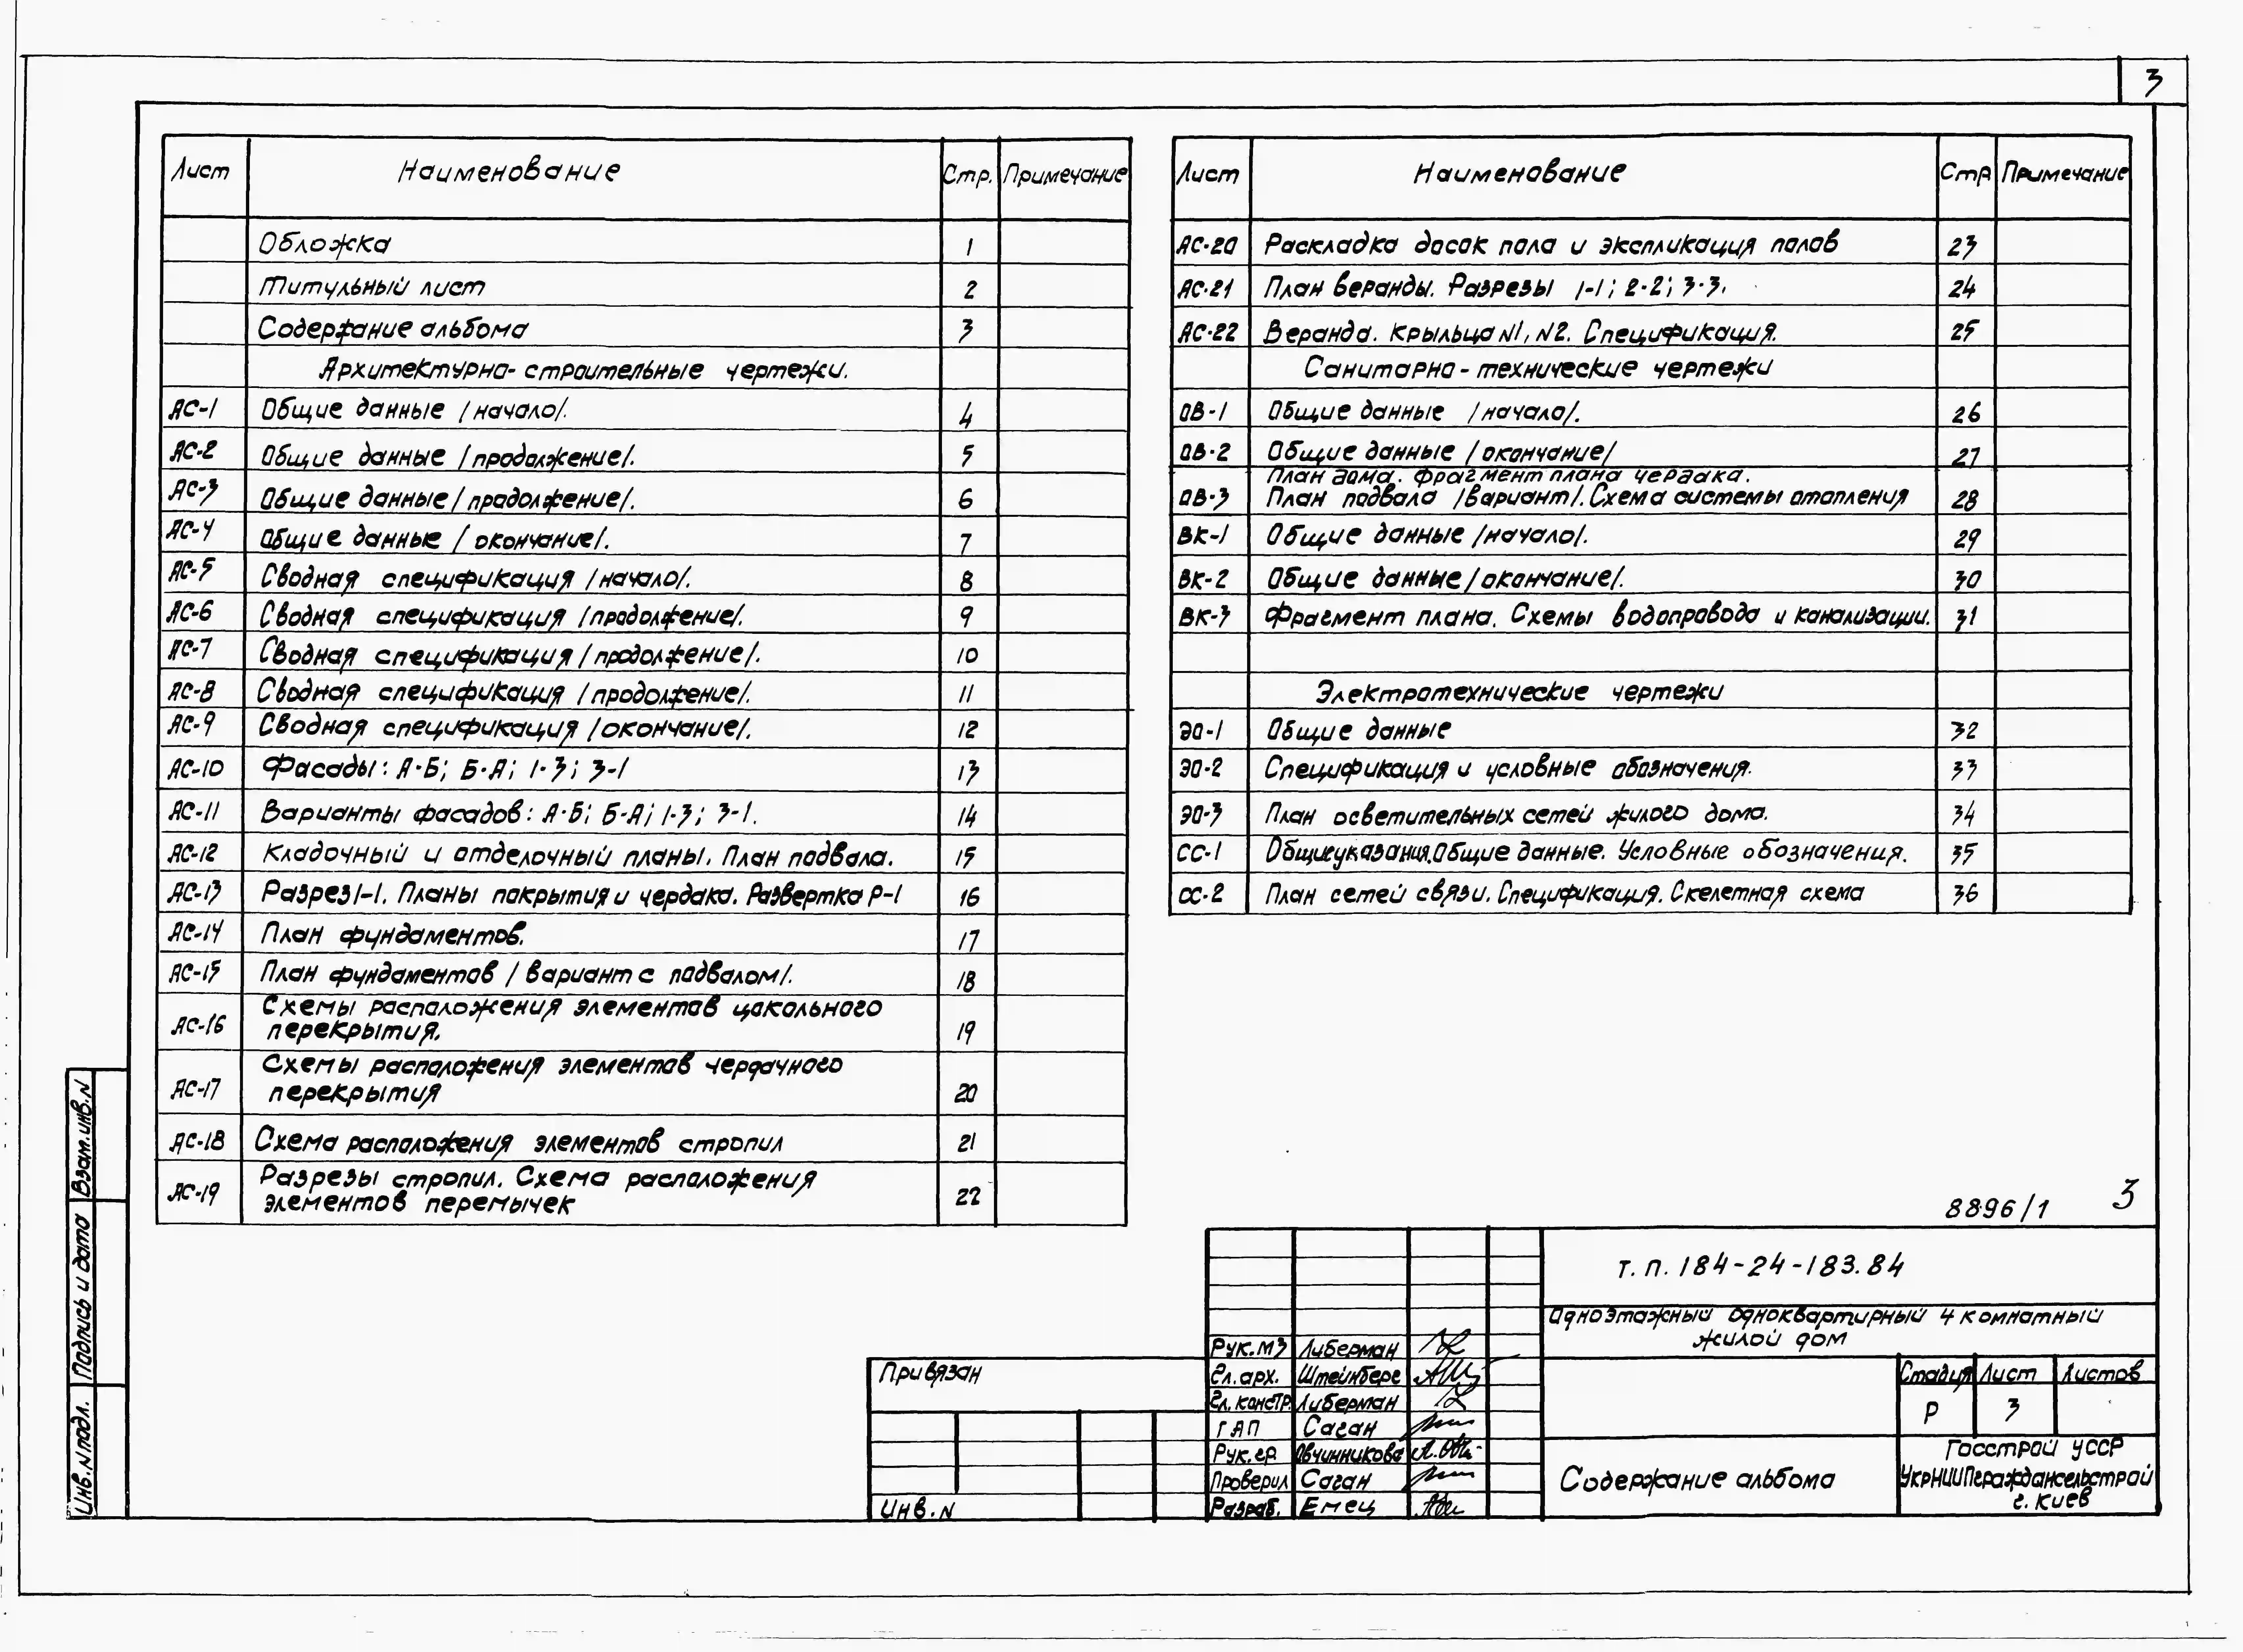 3
Лист Наименование Стр. Примечание
Обложка 1
Титульный лист 2
Содержание альбома 3
Архитектурно-строительные чертежи.
АС-1 Общие данные /начало/. 4
АС-2 Общие данные /продолжение/. 5
АС-3 Общие данные /продолжение/. 6
АС-4 Общие данные /окончание/. 7
АС-5 Сводная спецификация /начало/. 8
АС-6 Сводная спецификация /продолжение/. 9
АС-7 Сводная спецификация /продолжение/. 10
АС-8 Сводная спецификация /продолжение/. 11
АС-9 Сводная спецификация /окончание/. 12
АС-10 Фасады: А-Б; Б-А; 1-3; 3-1 13
АС-11 Варианты фасадов: А-Б; Б-А; 1-3; 3-1. 14
АС-12 Кладочный и отделочный планы. План подвала. 15
АС-13 Разрез 1-1. Планы покрытия и чердака. Развертка Р-1 16
АС-14 План фундаментов. 17
АС-15 План фундаментов /вариант с подвалом/. 18
АС-16 Схемы расположения элементов цокольного
перекрытия. 19
АС-17 Схемы расположения элементов чердачного
перекрытия 20
АС-18 Схема расположения элементов стропил 21
АС-19 Разрезы стропил. Схема расположения
элементов перемычек 22
Лист Наименование Стр Примечание
АС-20 Раскладка досок пола и экспликация полов 23
АС-21 План веранды. Разрезы 1-1; 2-2; 3-3. 24
АС-22 Веранда. Крыльца N1, N2. Спецификация. 25
Санитарно-технические чертежи
ОВ-1 Общие данные /начало/. 26
ОВ-2 Общие данные /окончание/ 27
План дома. Фрагмент плана чердака.
ОВ-3 План подвала /вариант/. Схема системы отопления 28
ВК-1 Общие данные /начало/. 29
ВК-2 Общие данные /окончание/. 30
ВК-3 Фрагмент плана. Схемы водопровода и канализации. 31
Электротехнические чертежи
ЭО-1 Общие данные 32
ЭО-2 Спецификация и условные обозначения. 33
ЭО-3 План осветительных сетей жилого дома. 34
СС-1 Общие указания. Общие данные. Условные обозначения. 35
СС-2 План сетей связи. Спецификация. Скелетная схема 36
8896/1 3
Т.П. 184-24-183.84
Одноэтажный одноквартирный 4 комнатный
жилой дом
Рук. МЗ Либерман
Гл. арх. Штейнберг
Гл. констр. Либерман
ГАП Саган
Рук. гр. Овчинникова
Проверил Саган
Разраб. Емец
Привязан
Инв. N
Стадия Лист Листов
Р 3
Содержание альбома
Госстрой УССР
УкрНИИПграждансельстрой
г. Киев
Взам. инв. N
Подпись и дата
Инв. N подл.